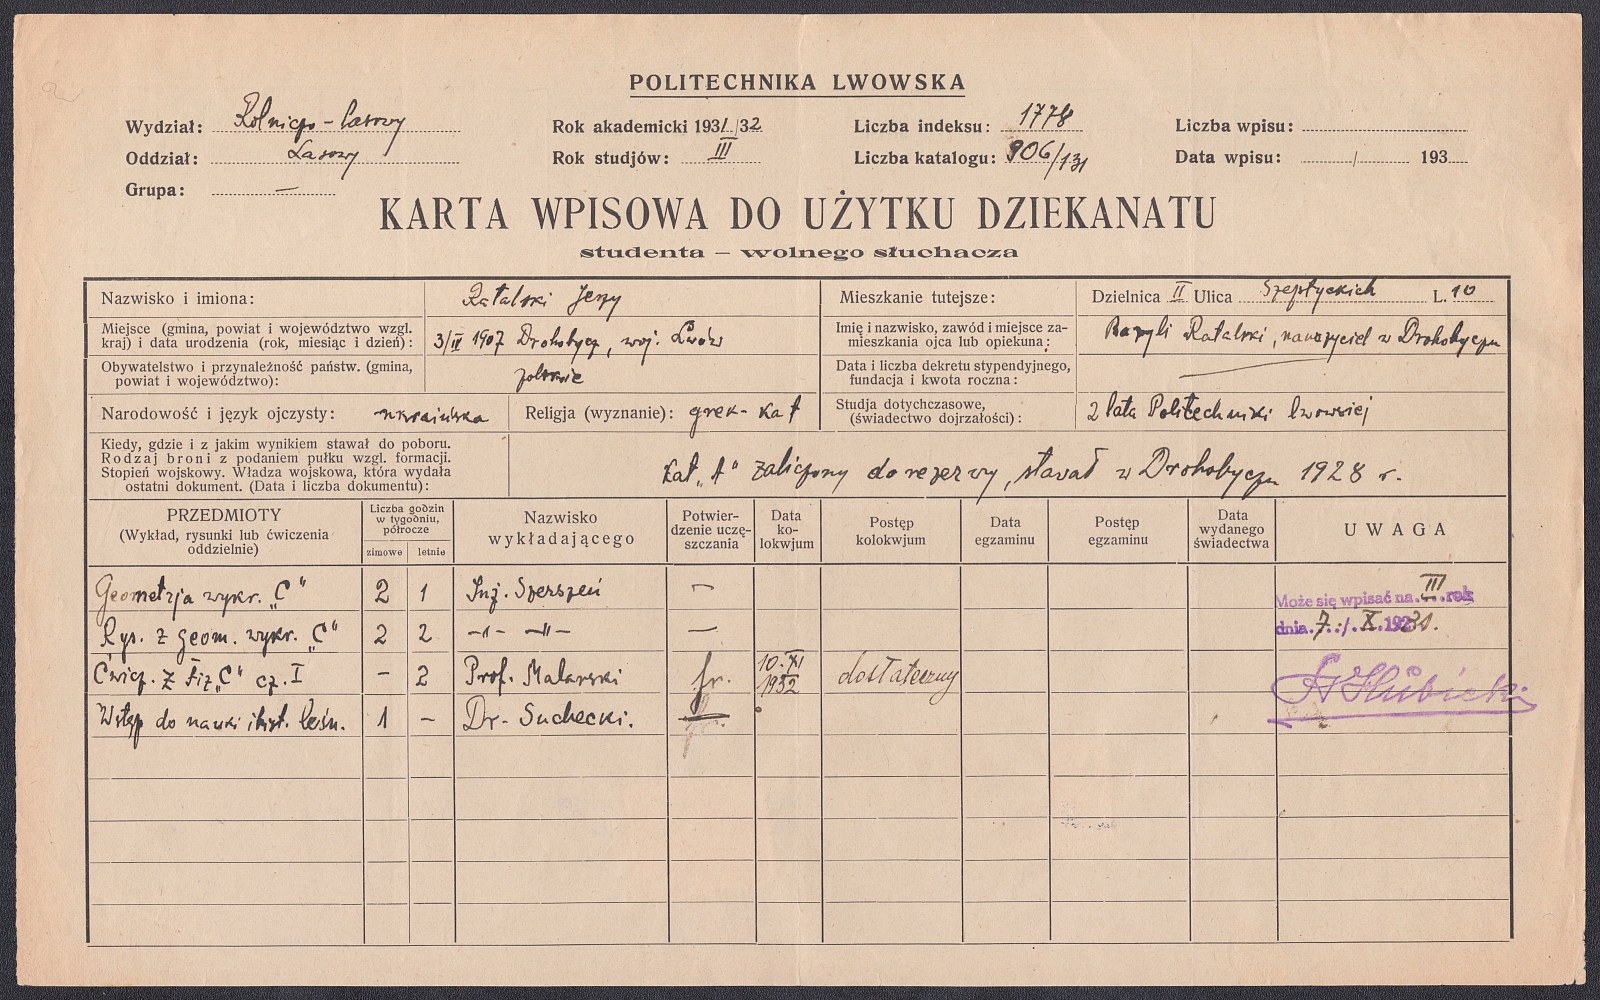 POLITECHNIKA LWOWSKA
Wydział: Rolniczo-lasowy Rok akademicki 1931/32 Liczba indeksu: 1778 Liczba wpisu:
Oddział: Lasowy Rok studjów: III Liczba katalogu: 906/131 Data wpisu: / 193
Grupa: —
KARTA WPISOWA DO UŻYTKU DZIEKANATU
studenta – wolnego słuchacza
Nazwisko i imiona: Ratalski Jerzy Mieszkanie tutejsze: Dzielnica II Ulica Szeptyckich L. 10
Miejsce (gmina, powiat i województwo wzgl. kraj) i data urodzenia (rok, miesiąc i dzień): 3/IV 1907 Drohobycz, woj. Lwów
Imię i nazwisko, zawód i miejsce zamieszkania ojca lub opiekuna: Bazyli Ratalski, nauczyciel w Drohobyczu
Obywatelstwo i przynależność państw. (gmina, powiat i województwo): polskie
Data i liczba dekretu stypendyjnego, fundacja i kwota roczna: —
Narodowość i język ojczysty: ukraińska Religja (wyznanie): grek-kat
Studja dotychczasowe, (świadectwo dojrzałości): 2 lata Politechniki lwowskiej
Kiedy, gdzie i z jakim wynikiem stawał do poboru.
Rodzaj broni z podaniem pułku wzgl. formacji.
Stopień wojskowy. Władza wojskowa, która wydała
ostatni dokument. (Data i liczba dokumentu):
kat „A" zaliczony do rezerwy, stawał w Drohobyczu 1928 r.
PRZEDMIOTY (Wykład, rysunki lub ćwiczenia oddzielnie)
Liczba godzin w tygodniu, półrocze zimowe letnie
Nazwisko wykładającego
Potwierdzenie uczęszczania
Data kolokwjum
Postęp kolokwjum
Data egzaminu
Postęp egzaminu
Data wydanego świadectwa
UWAGA
Geometrja wykr. „C" 2 1 Inż. Szerszeń —
Rys. z geom. wykr. „C" 2 2 —„— —„— —
Ćwicz. z Fiz „C" cz. I – 2 Prof. Malarski fr. 10.XI 1932 dostateczny
Wstęp do nauki i hist. leśn. 1 – Dr. Suchecki.
Może się wpisać na III rok
dnia 7./X.1931.